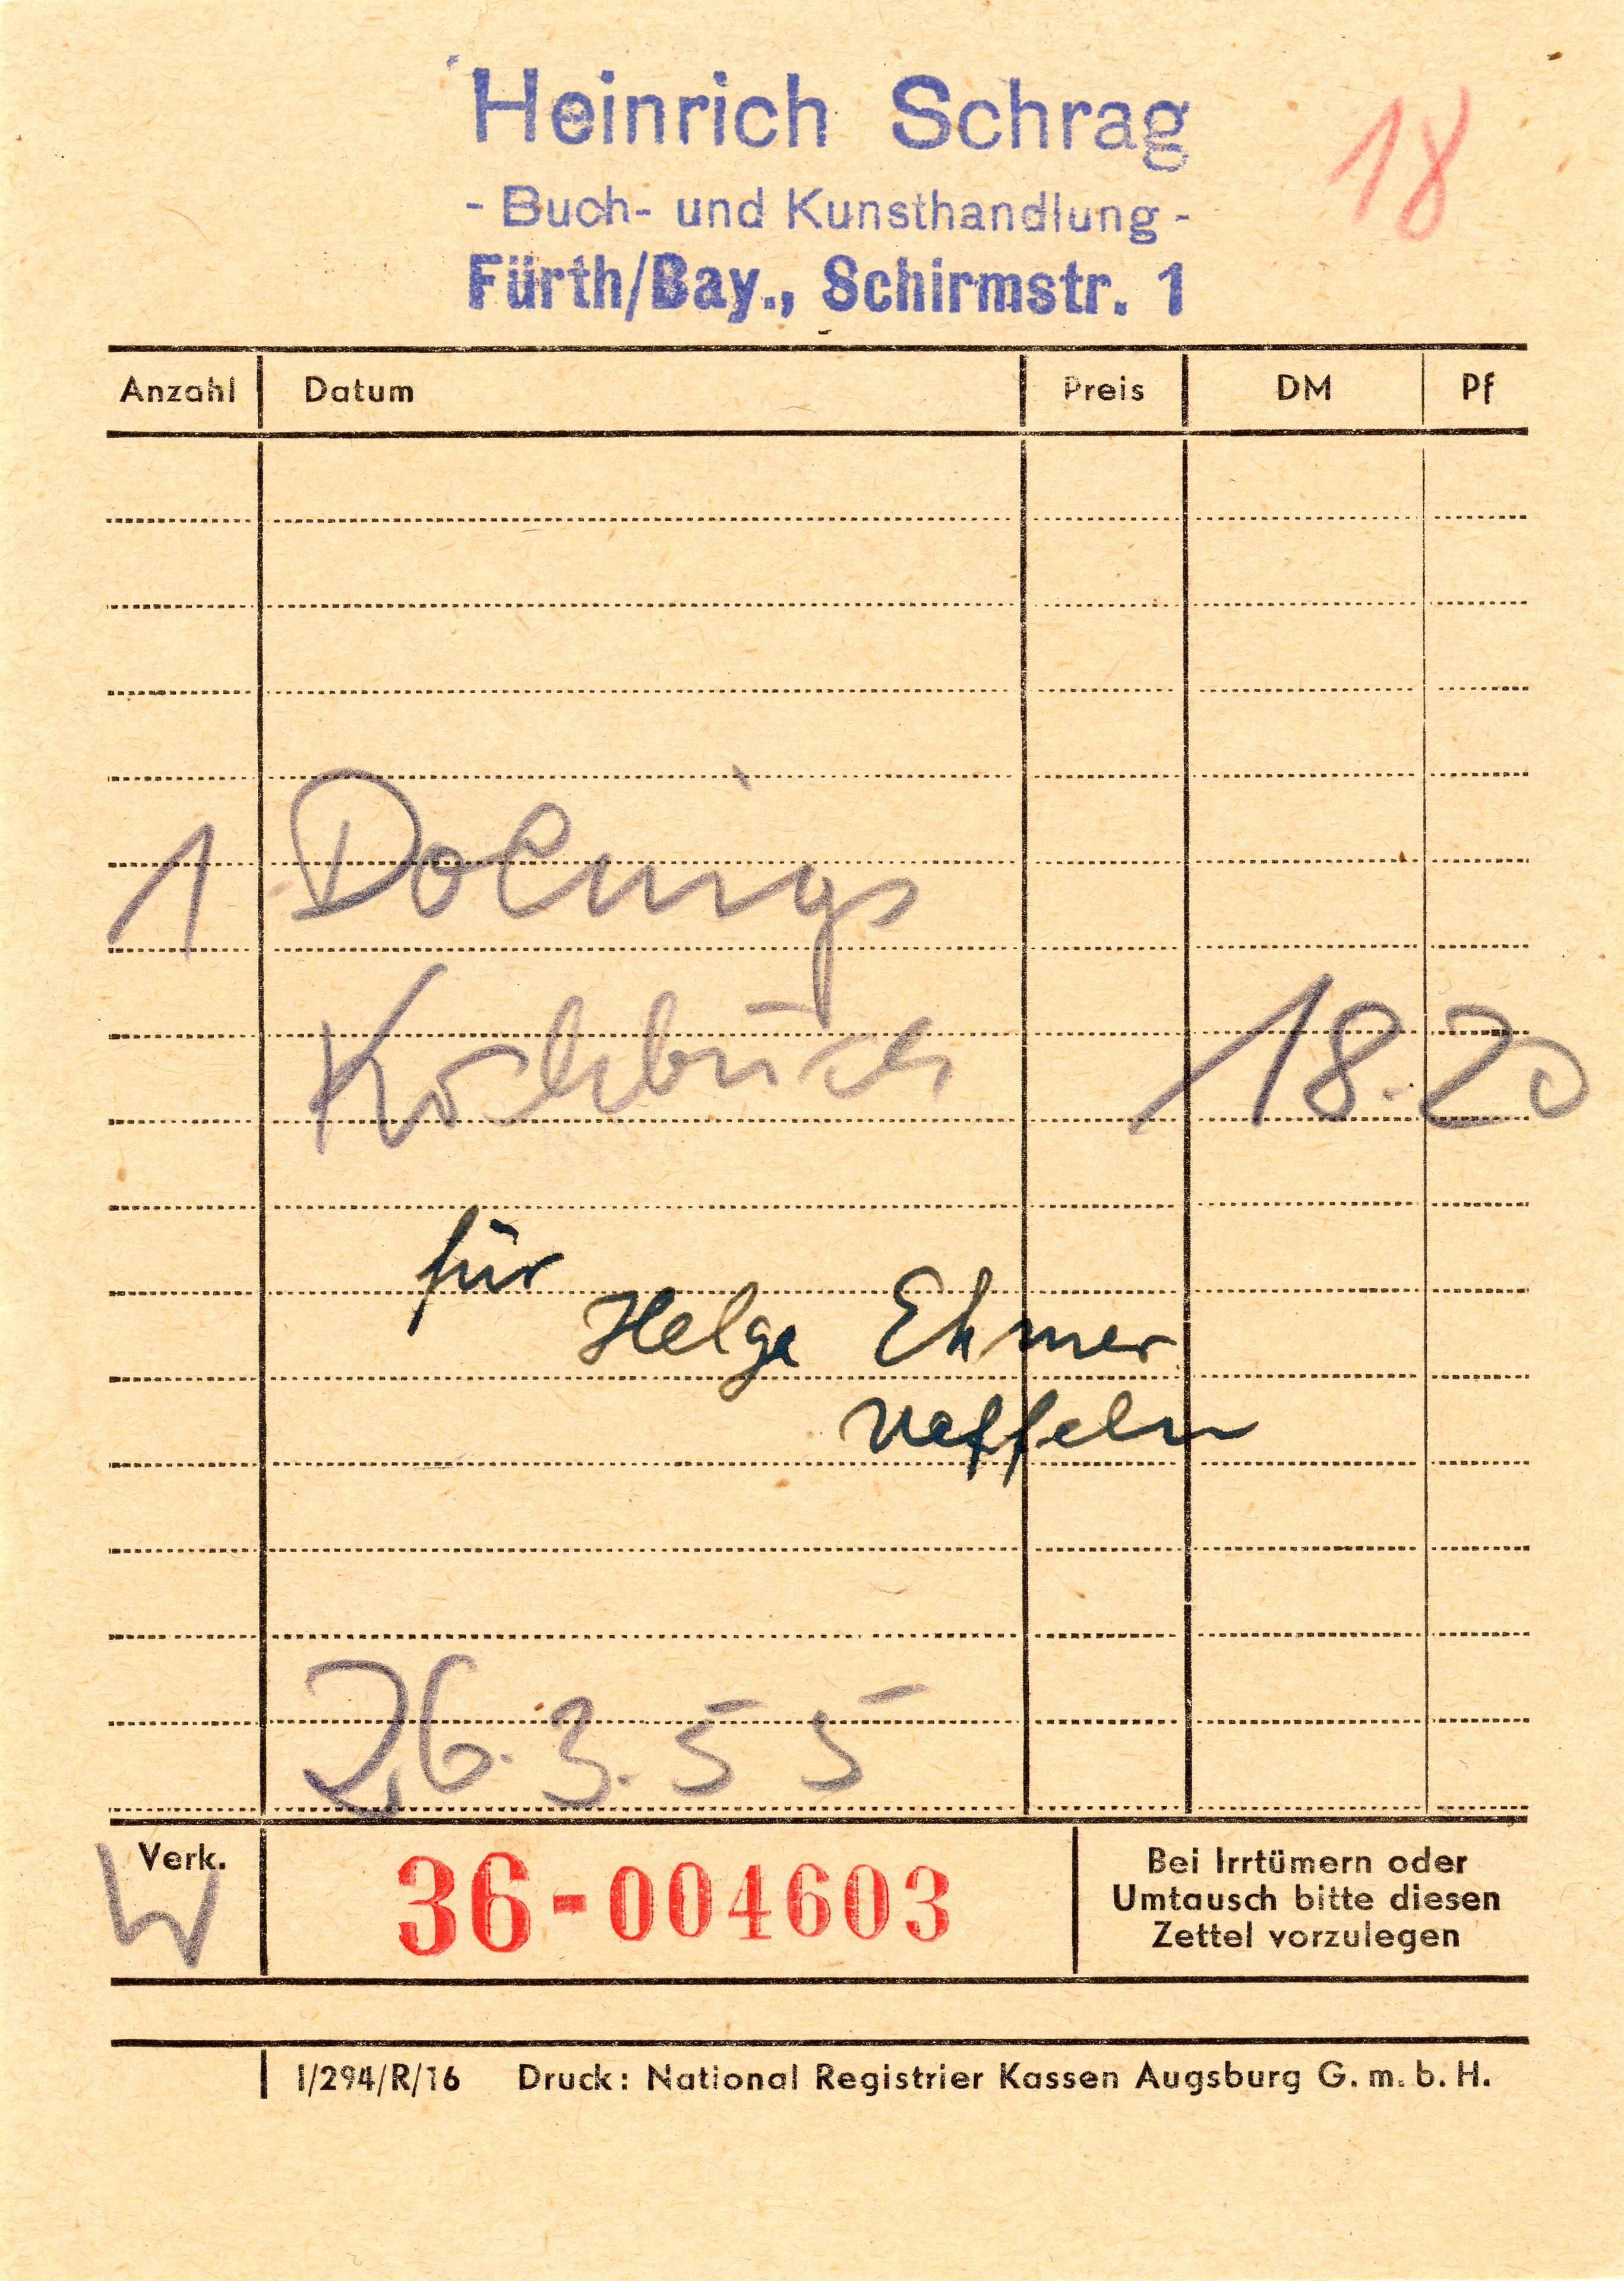 Heinrich Schrag
18
- Buch- und Kunsthandlung -
Fürth/Bay., Schirmstr. 1
Anzahl Datum Preis DM Pf
1
Kochbuch 18.20
für
Helge Ehmer
26.3.55
Verk.
W
36-004603
Bei Irrtümern oder
Umtausch bitte diesen
Zettel vorzulegen
I/294/R/16 Druck: National Registrier Kassen Augsburg G. m. b. H.